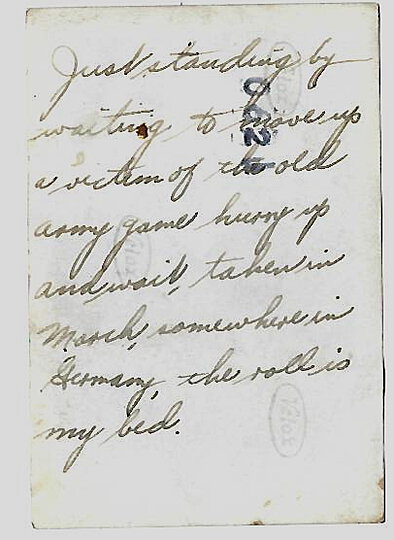 Just standing by
waiting to move up
a victim of the old
army game hurry up
and wait, taken in
March, somewhere in
Germany, the roll is
my bed.
Velox